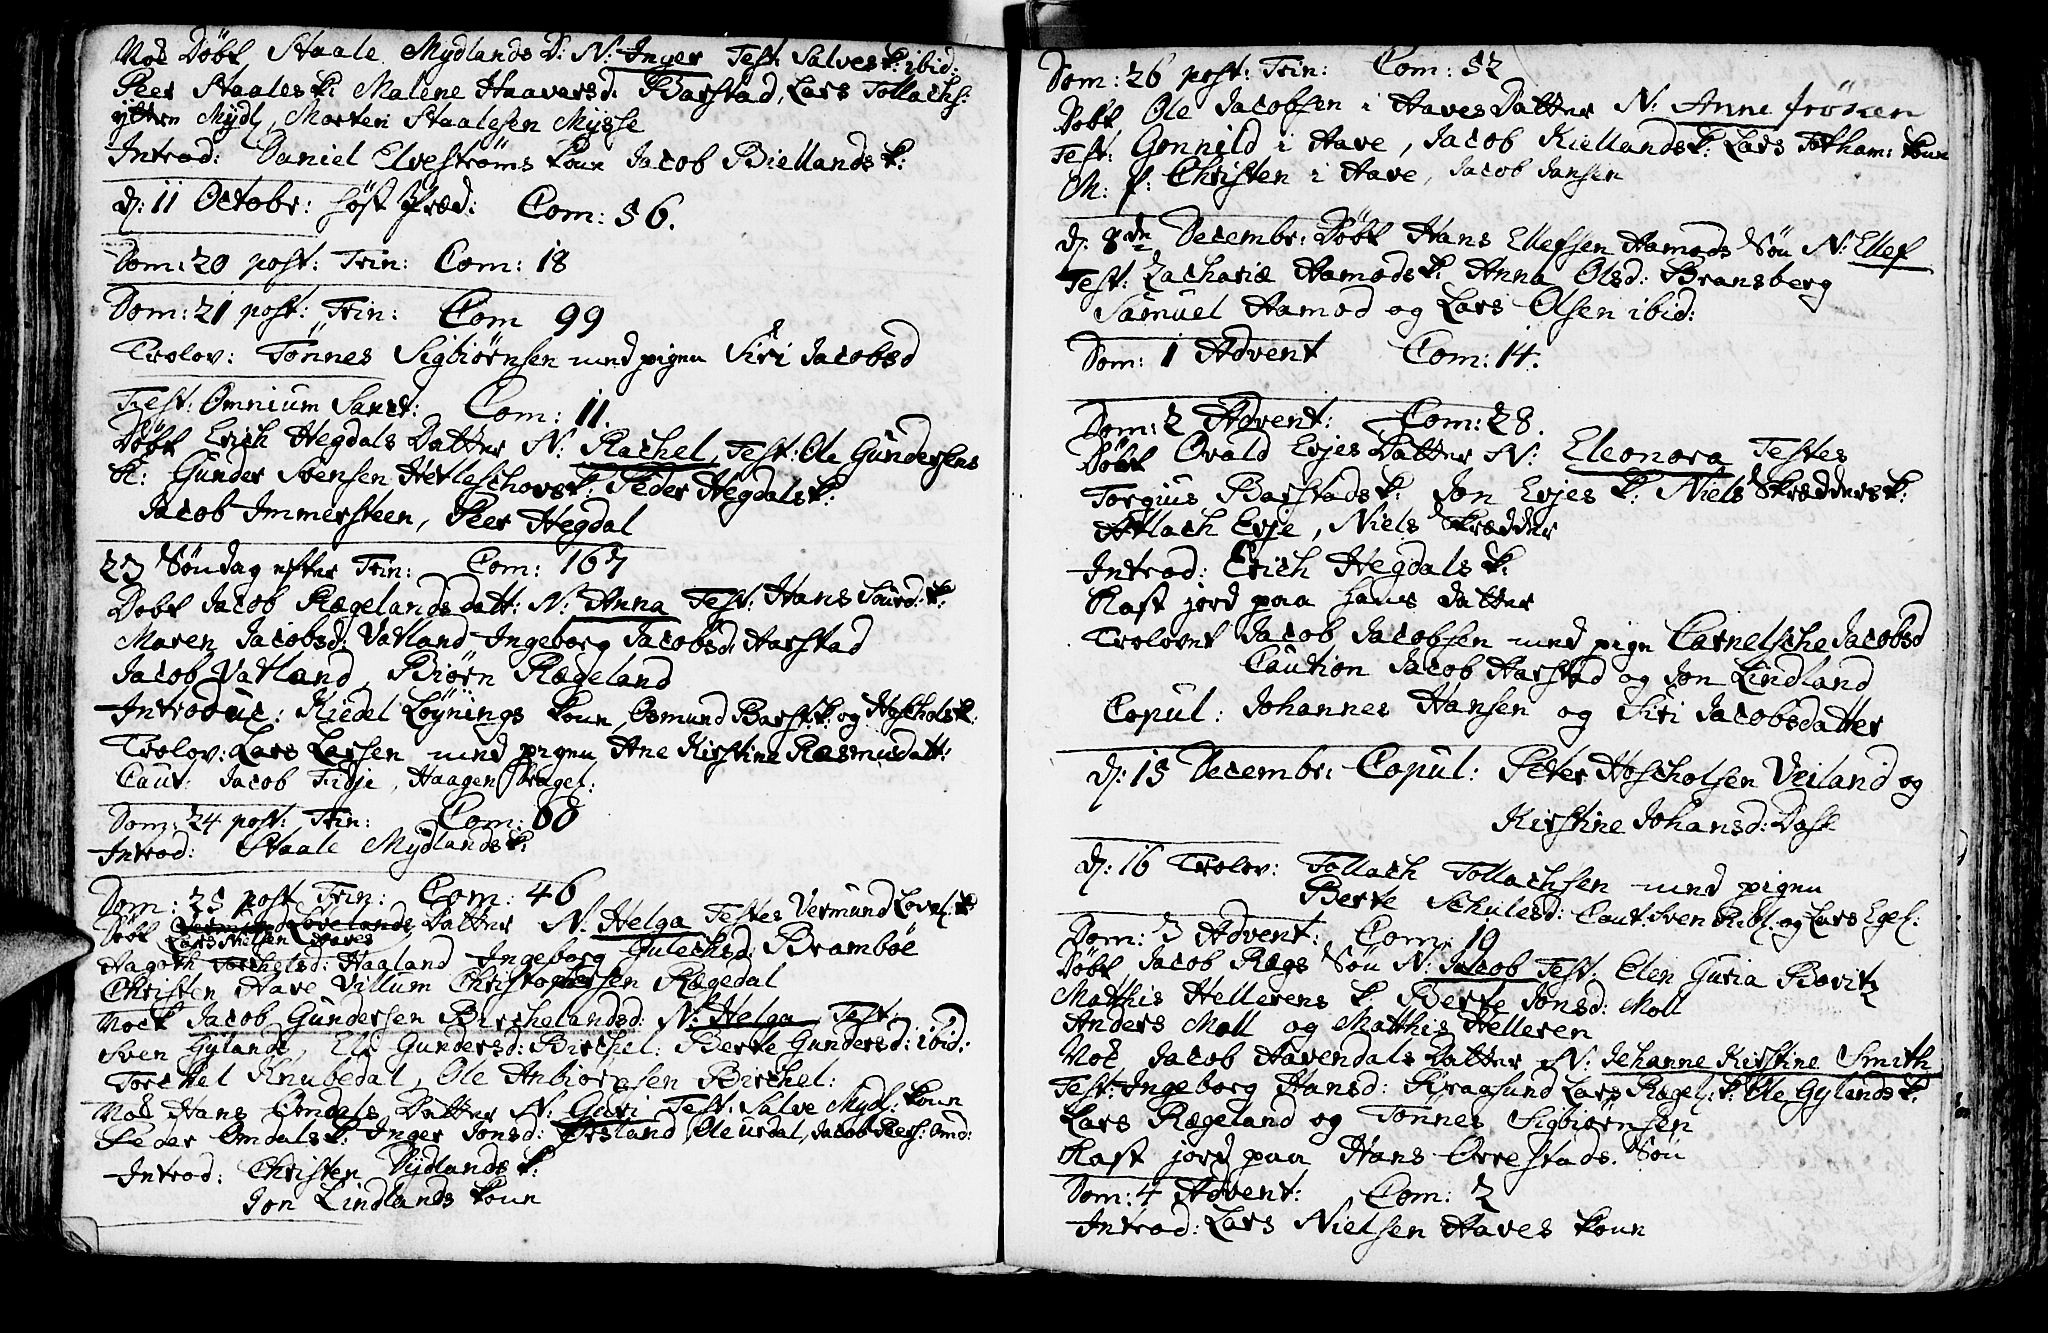 Noch Döbt Staale Mydlands D: N: Inger Test: Salves K: ibid:
Peer Staales K: Malene Haavarsd: Barstad, Lars Tollachs:
yttre Mydl, Morten Staalesen Mysse
Introd: Daniel Elvestrøms Kone Jacob Biellands K:
d: 11 Octobr: Høst Præd: Com: 56.
Dom: 20 post: Trin: Com: 18
Dom: 21 post: Trin: Com 99
Trolov: Tönnes Sigbiørnsen med pigen Siri Jacobsd
Fest: Omnium Sanct: Com: 11.
Döbt Erich Hegdals Datter N: Rachel, Test: Ole Gundersens
K: Gunder Svensen Peder Hegdals K:
Jacob Immersteen, Peer Hegdal
23 Söndag efter Trin: Com: 167
Döbt Jacob Rægelands Datt: N: Anna Test: Hans K:
Maren Jacobsd: Vatland Ingeborg Jacobsd: Aarstad
Jacob Vatland, Biørn Rægeland
Introduc: Kiedel Löynings Kone, Osmund Barst: K: og Høschols K:
Trolov: Lars Larsen med pigen Ane Kirstine Rasmusdatt:
Caut: Jacob Fidje, Haagen
Dom: 24 post: Trin: Com: 60
Introd: Staale Mydlands K:
Dom: 25 post Trin: Com: 46
Döbt Vermund Lovelands Datter N: Helga Testes Vermund Lovel: K:
Lars Nielsen Haves
Torchelsd: Haaland Ingeborg Bramböe
Christen Have Villum Christophersen Rægedal
Noch Jacob Gundersen Birchelands d: N: Helga Test:
Sven Gyland, Gundersd: Birchel: Berte Gundersd: ibid:
Torchel Knubedal, Ole Anbiørnsen Birchel:
Noch Hans Omdals Datter N: Guri Test: Salve Mydl: Kone
Peder Omdals K: Inger Jonsd: Ørsland, Ole Urdal, Jacob Peers: Omd:
Introd: Christen Nydlands K:
Jon Lindlands Kone
Dom: 26 post: Trin: Com: 52
Döbt Ole Jacobsen i Haves Datter N: Anne
Test: Gonnild i Have, Jacob Kiellands K: Lars Kone
Christen i Have, Jacob Jansen
d: 8de Decembr: Döbt Hans Ellefsen Hamods Sön N: Ellef
Test: Zachariæ Hamods K: Anna Olsd: Bransberg
Samuel Hamod og Lars Olsen ibid:
Dom: 1 Advent Com: 14.
Dom: 2 Advent: Com: 28.
Döbt Ovald Evjes Datter N: Eleonora Testes
Torgius Barstads K: Jon Evjes K: Niels Skrædders K:
Atlach Evje, Niels Skrædder
Introd: Erich Hegdals K:
Kast jord paa hans Datter
Trolovet Jacob Jacobsen med pige Carnelsche Jacobsd
Caution Jacob Aarstad og Jon Lindland
Copul: Johannes Hansen og Siri Jacobsdatter
d: 15 Decembr: Copul: Peter Høscholsen Veiland og
Kirstine Johansd: Dase
d: 16 Trolov: Tollach Tollachsen med pigen
Berte Schulesd: Caut: Sven og Lars Egel:
Dom: 3 Advent: Com: 19
Döbt Jacob Rægs Sön N: Jacob Test: Elen Guria Boritz
Matthis Hellerens K: Berte Jonsd: Moll
Anders Moll og Matthis Helleren
Noch Jacob Havendals Datter N: Johanne Kirstine Smith
Test: Ingeborg Hansd: Kragsund Lars Rægel: K: Ole Gylands K:
Lars Rægeland og Tönnes Sigbiørnsen
Kast jord paa Hans Ørrestads Sön
Dom: 4 Advent: Com: 2
Introd: Lars Nielsen Haves Kone